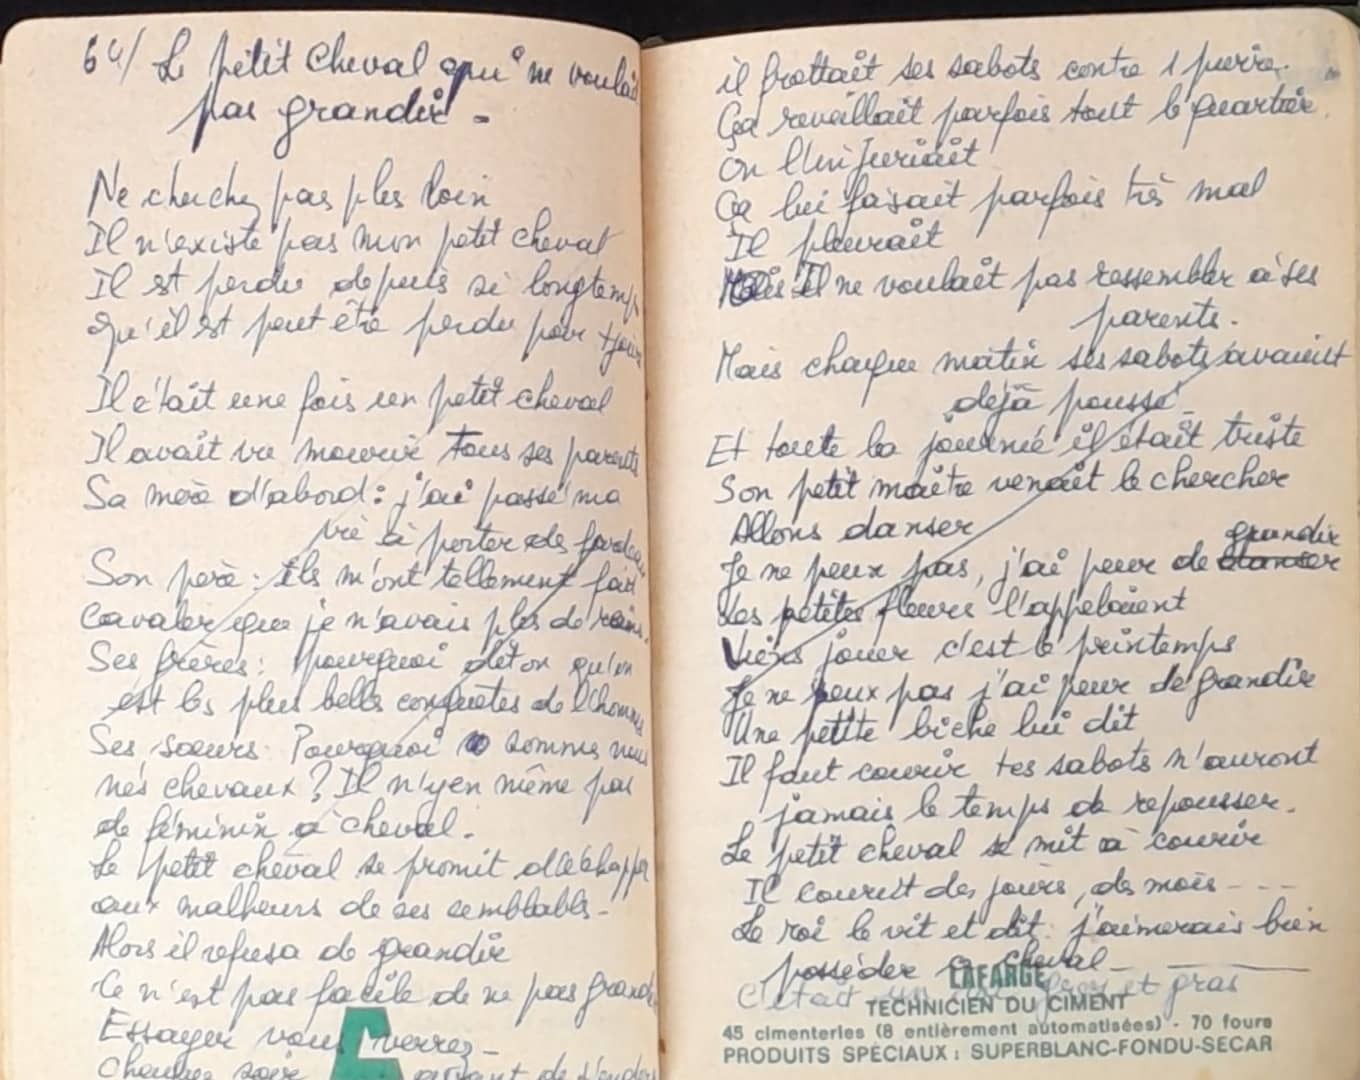 64/ Le petit cheval qui ne voulait
pas grandir -
Ne cherchez pas plus loin
Il n'existe pas mon petit cheval
Il est perdu depuis si longtemps
Qu'il est peut être perdu pour tjours
Il était une fois un petit cheval
Il avait vu mourir tous ses parents
Sa mère d'abord : j'ai passé ma
vie à porter des fardeaux
Son père : ils m'ont tellement fait
cavaler que je n'avais plus de reins.
Ses frères : pourquoi dit on qu'on
est les plus belles conquêtes de l'homme
Ses soeurs : Pourquoi sommes nous
nés chevaux ? Il n'y en même pas
de féminin à cheval.
Le petit cheval se promit d'échapper
aux malheurs de ses semblables -
Alors il refusa de grandir
Ce n'est pas facile de ne pas grandir
Essayer vous verrez -
Chaque soir avant de s'endor
il frottait ses sabots contre 1 pierre.
Ça reveillait parfois tout le quartier.
On l'injuriait
Ça lui faisait parfois très mal
Il pleurait
Mais Il ne voulait pas ressembler à ses
parents.
Mais chaque matin ses sabots avaient
déjà poussé -
Et toute la journée il était triste
Son petit maître venait le chercher
Allons danser
grandir
Je ne peux pas, j'ai peur de danser
Les petites fleurs l'appelaient
Viens jouer c'est le printemps
Je ne peux pas j'ai peur de grandir
Une petite biche lui dit
Il faut courir tes sabots n'auront
jamais le temps de repousser.
Le petit cheval se mit à courir
Il courut des jours, des mois - - -
Le roi le vit et dit : j'aimerais bien
posséder ce cheval -
C'était un gros et gras
LAFARGE
TECHNICIEN DU CIMENT
45 cimenteries (8 entièrement automatisées) - 70 fours
PRODUITS SPÉCIAUX : SUPERBLANC-FONDU-SECAR